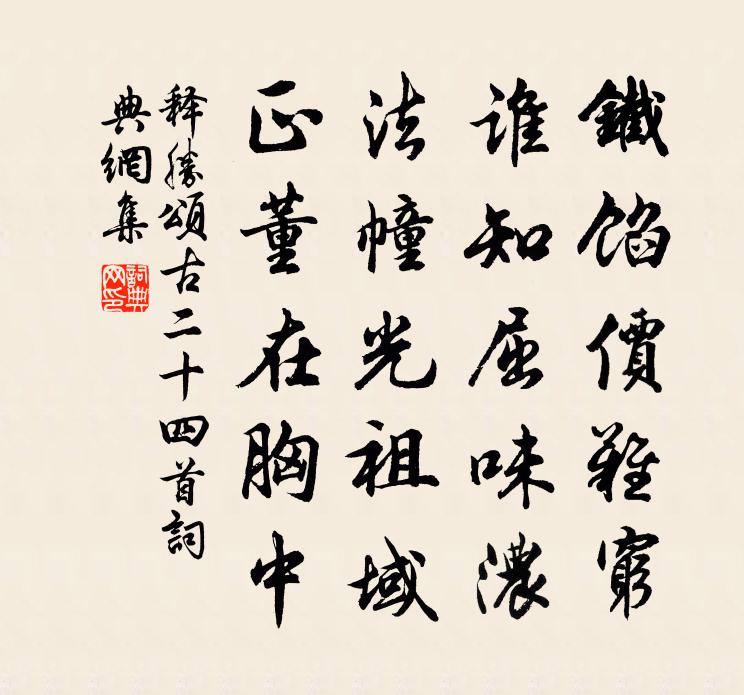 鐵餡價難窮
誰知屈味濃
法幢光祖域
正董在胸中
释勝頌古二十四首詞
典網集
詞典網印